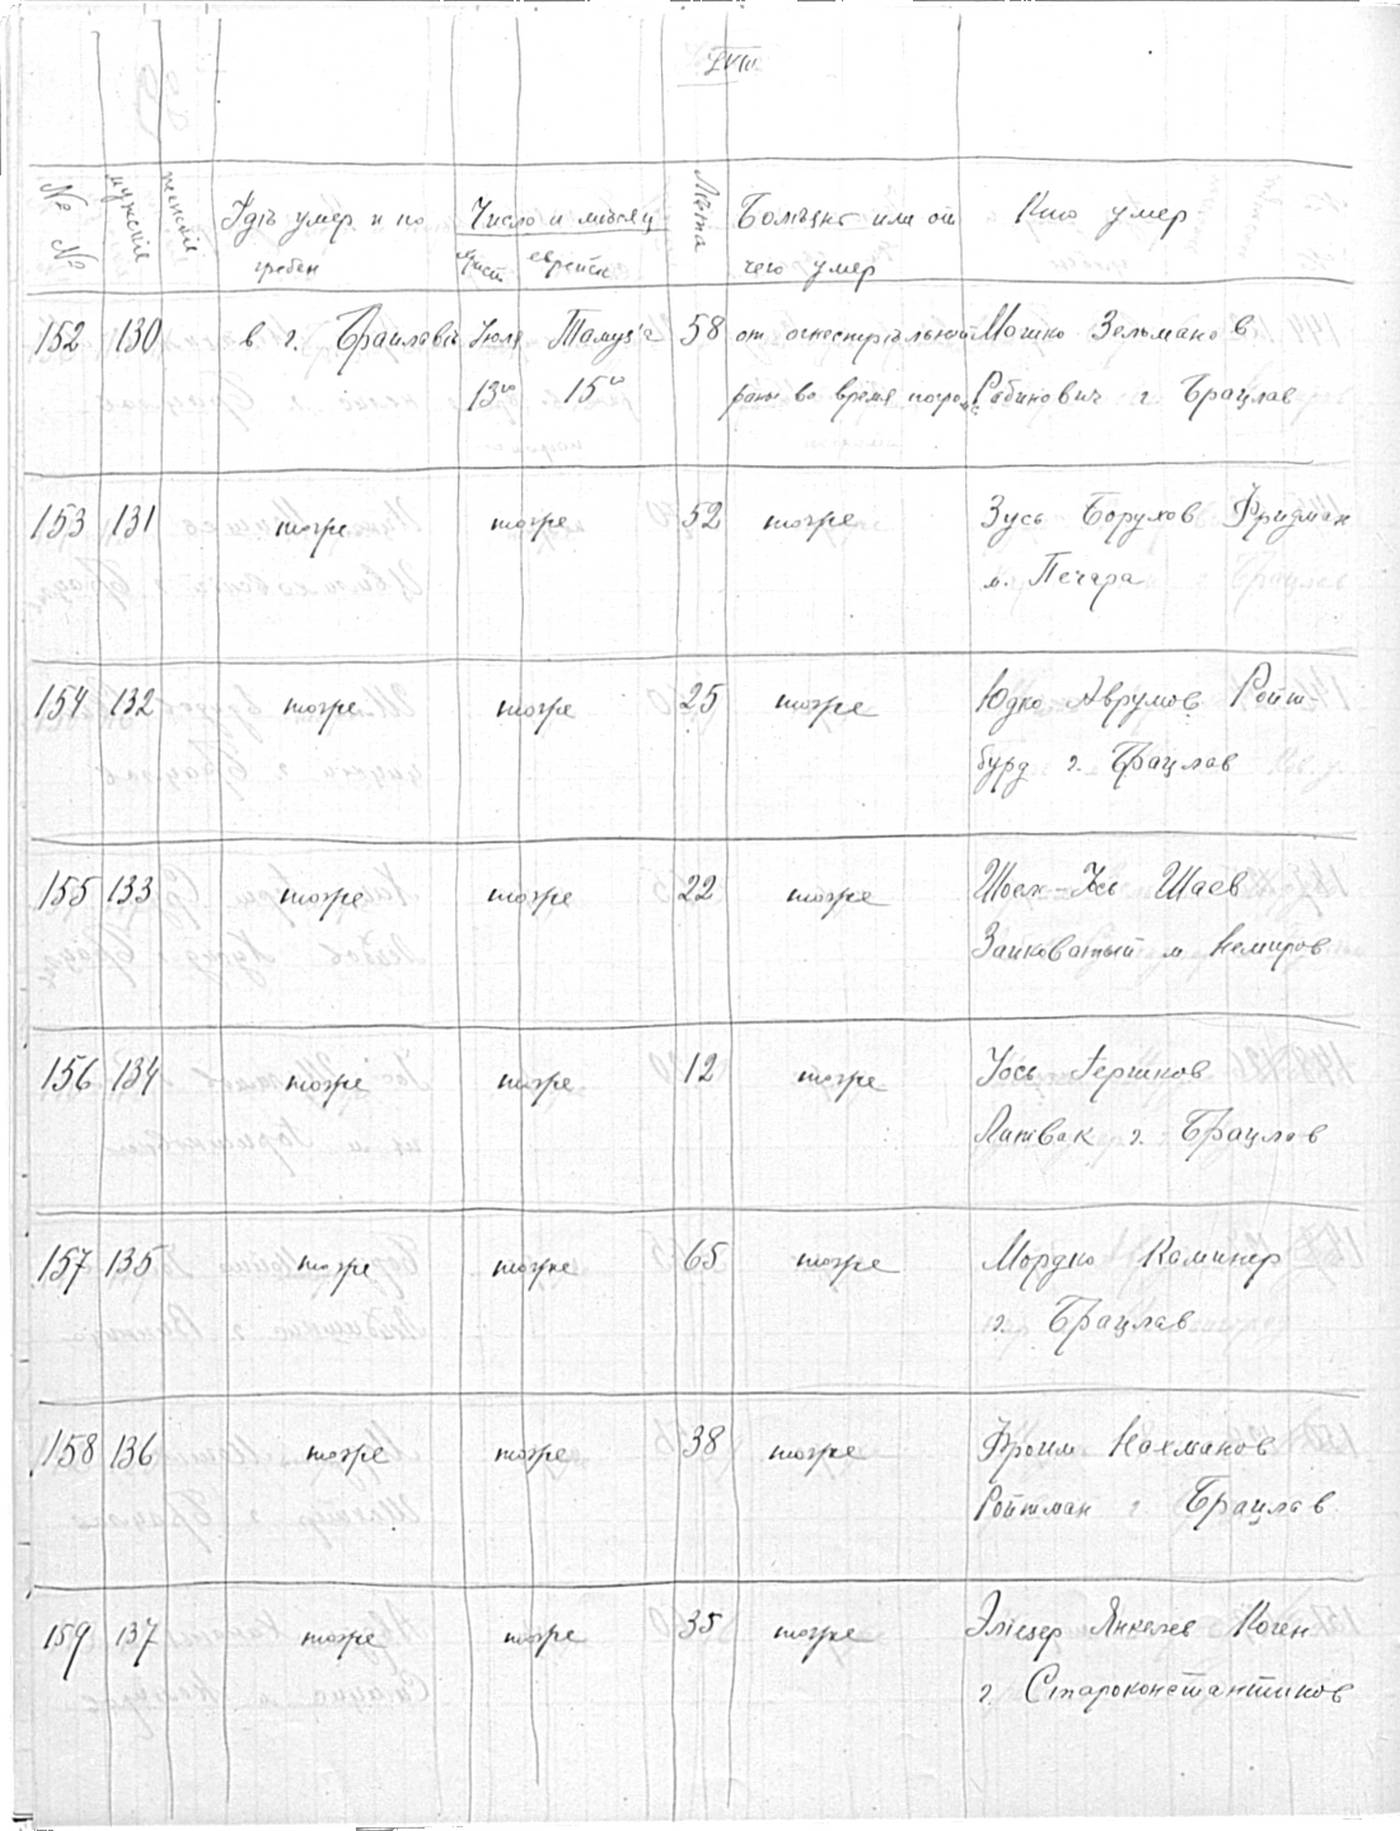 № №
мужскiе
женскiе
Гдѣ умер и по
гребен
Число и мѣсяц
Христ. еврейск
Лѣта
Болѣзнь или от
чего умер
Кто умер
152 130 в г. Брацлавѣ Июля Тамуз'а 58 от огнестрѣльной Мошко Зельманов
13го 15го раны во время погрома Рабинович г. Брацлав
153 131 тоже тоже 52 тоже Зусь Борухов Фридман
м. Печера
154 132 тоже тоже 25 тоже Юдко Аврумов Ройт-
бурд г. Брацлав
155 133 тоже тоже 22 тоже Шоел-Ось Шаев
Заиковатый м Немиров
156 134 тоже тоже 12 тоже Iось Гершков
Литвак г. Брацлав
157 135 тоже тоже 65 тоже Мордко Каминер
г. Брацлав
158 136 тоже тоже 38 тоже Фроим Нахманов
Ройтман г Брацлав
159 137 тоже тоже 35 тоже Элiезер Янкелев Коген
г. Староконстантинов